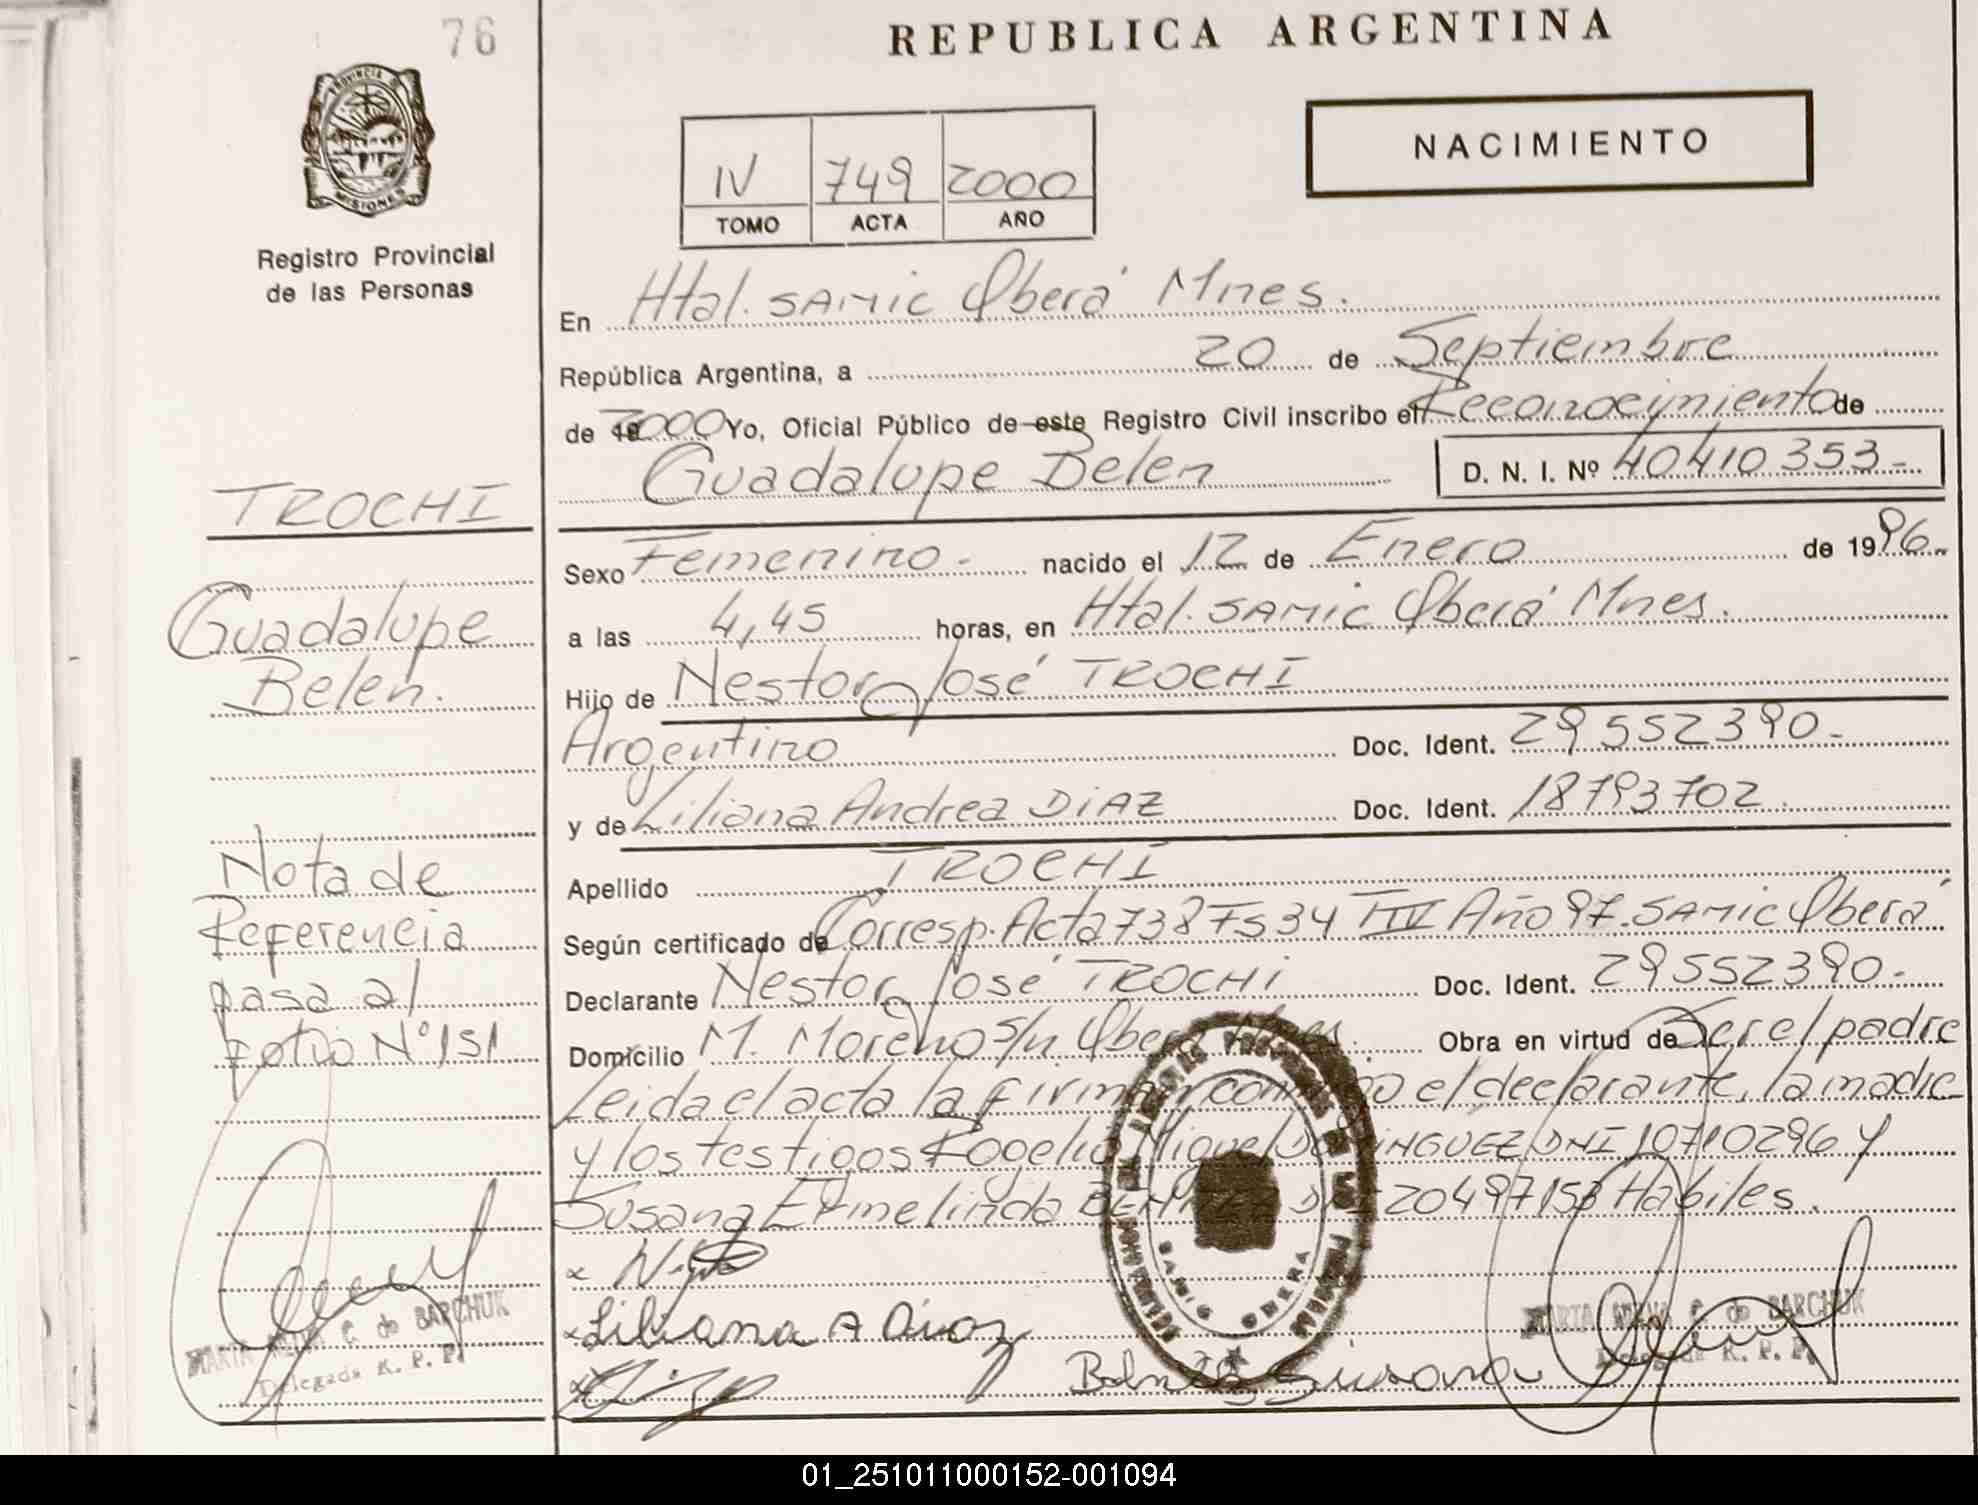 76
REPUBLICA ARGENTINA
PROVINCIA DE
MISIONES
Registro Provincial
de las Personas
IV 749 2000
TOMO ACTA AÑO
NACIMIENTO
En Htal. SAMIC Oberá Mnes.
República Argentina, a 20 de Septiembre
de 2000 Yo, Oficial Público de este Registro Civil inscribo el Reconocimiento de
Guadalupe Belen D. N. I. Nº 40410353-
TROCHI
Guadalupe
Belen.
Sexo Femenino - nacido el 12 de Enero de 1996.
a las 4,45 horas, en Htal. SAMIC Oberá Mnes.
Hijo de Nestor José TROCHI
Argentino Doc. Ident. 29552390-
y de Liliana Andrea DiAZ Doc. Ident. 18793702.
Apellido TROCHI
Según certificado de Corresp. Acta 738 Fs 34 TIV Año 97. SAMIC Oberá
Declarante Nestor José TROCHi Doc. Ident. 29552390-
Domicilio M. Moreno s/n Oberá Mnes. Obra en virtud de Ser el padre
Leida el acta la firman conmigo el declarante, la madre
y los testigos Rogelio Miguel DOMINGUEZ DNI 10710296 y
Susana Ermelinda DNI 20497153 Habiles.
Nota de
Referencia
pasa al
Folio Nº 151
x
x Liliana A Diaz
x
Susana
SAMIC OBERA
MARTA C. de BARCHUK
Delegada R. P. P.
MARTA C. de BARCHUK
Delegada R. P. P.
01_251011000152-001094